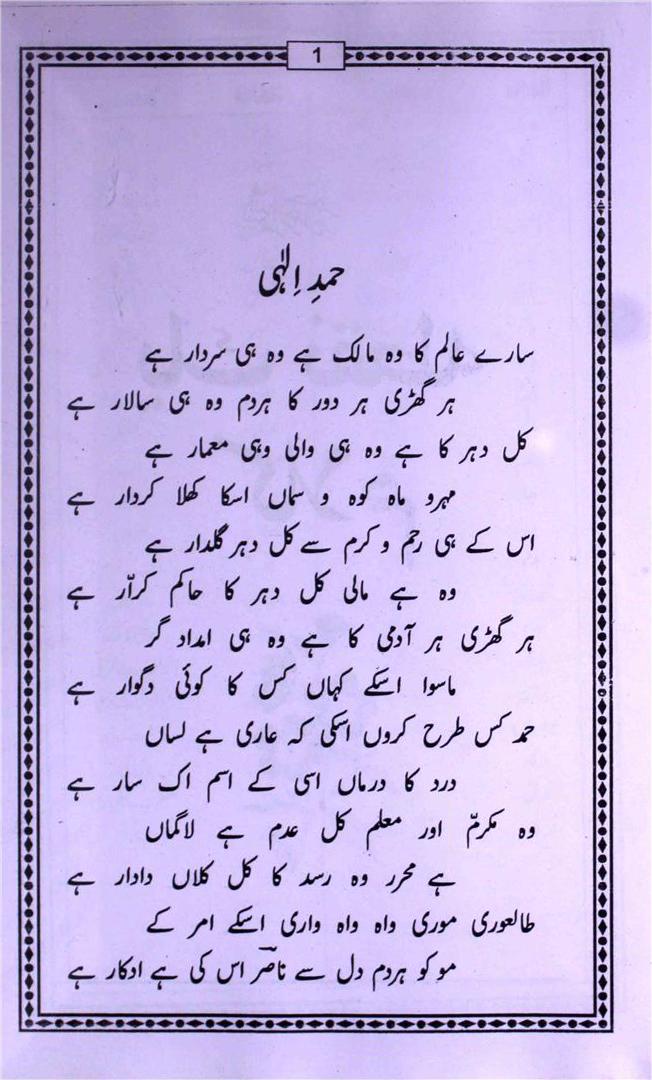 1
حمدِ اِلٰہی
سارے عالم کا وہ مالک ہے وہ ہی سردار ہے
ہر گھڑی ہر دور کا ہردم وہ ہی سالار ہے
کل دہر کا ہے وہ ہی والی وہی معمار ہے
مہرو ماہ کوہ و سماں اسکا کھلا کردار ہے
اس کے ہی رحم و کرم سے کل دہر گلدار ہے
وہ ہے مالی کل دہر کا حاکم کرّار ہے
ہر گھڑی ہر آدمی کا ہے وہ ہی امداد گر
ماسوا اسکے کہاں کس کا کوئی دگوار ہے
حمد کس طرح کروں اسکی کہ عاری ہے لساں
درد کا درماں اسی کے اسم اک سار ہے
وہ مکرمّ اور معلم کل عدم ہے لاگماں
ہے محرر وہ رسد کا کل کلاں دادار ہے
طالعوری موری واہ واہ واری اسکے امر کے
موکو ہردم دل سے ناصر اس کی ہے ادکار ہے